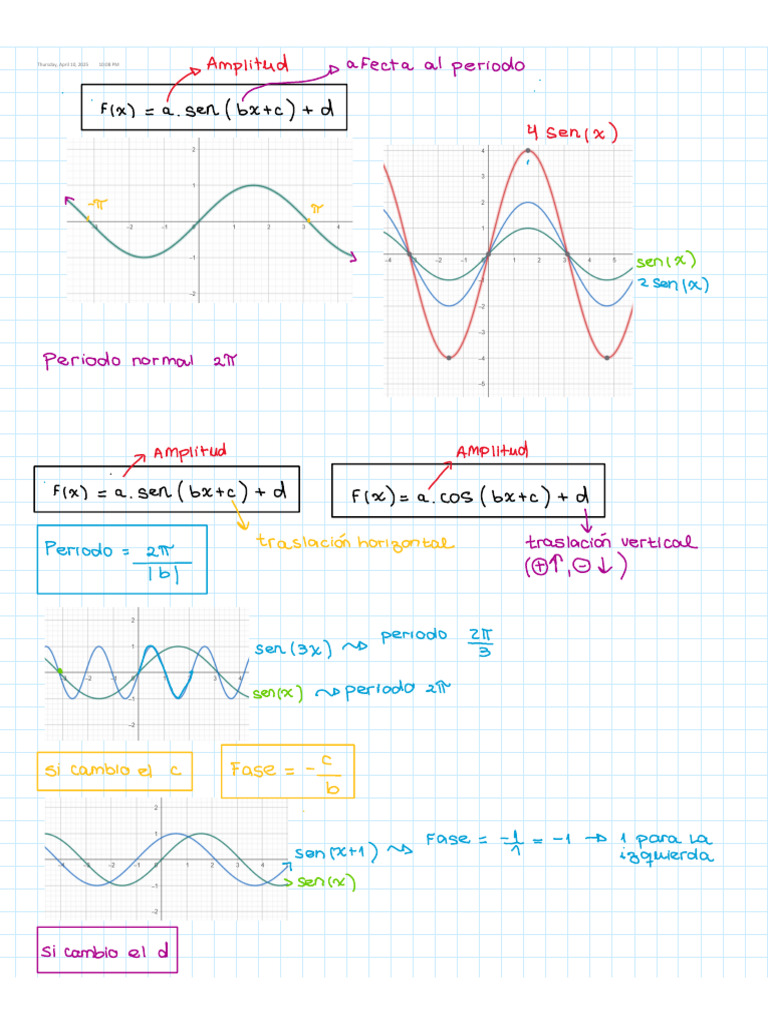 Thursday, April 10, 2025 10:08 PM
Amplitud
afecta al periodo
F(x) = a.sen(bx+c) + d
4 sen(x)
-π
π
sen(x)
2 sen(x)
Periodo normal 2π
Amplitud
F(x) = a.sen(bx+c) + d
Amplitud
F(x) = a.cos(bx+c) + d
traslación horizontal
traslación vertical
(⊕↑, ⊖↓)
Periodo = 2π/|b|
sen(3x) ⇝ periodo 2π/3
sen(x) ⇝ periodo 2π
si cambio el c
Fase = -c/b
sen(x+1) ⇝ Fase = -1/1 = -1 → 1 para la izquierda
sen(x)
si cambio el d